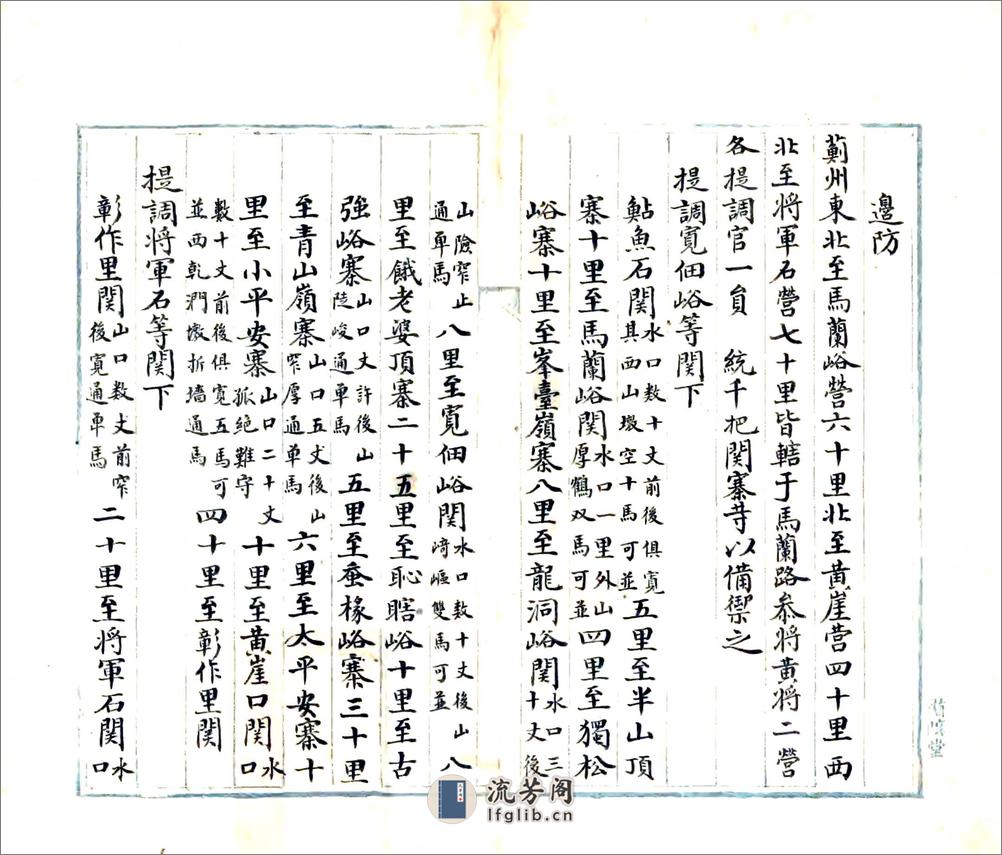 邊防
薊州東北至馬蘭峪營六十里北至黃崖營四十里西
北至將軍石營七十里皆轄于馬蘭路叅將黃將二營
各提調官一員 統千把関寨䓁以備禦之
提調寛佃峪等関下
鮎魚石関水口數十丈前後俱寛其西山墩空十馬可並五里至半山頂
寨十里至馬蘭峪関水口一里外山厚鶴双馬可並四里至獨松
峪寨十里至峯臺嶺寨八里至龍洞峪関水口三十丈後
山險窄止通单馬八里至寛佃峪関水口數十丈後山崎嶇雙馬可並八
里至餓老婆頂寨二十五里至耻瞎峪十里至古
強峪寨山口丈許後山陡峻通单馬五里至蚕椽峪寨三十里
至青山嶺寨山口五丈後山窄厚通单馬六里至太平安寨十
里至小平安寨山口二十丈孤絶難守十里至黃崖口関水口
數十丈前後俱寛五馬可並西乾澗墩折墙通馬四十里至彰作里関
提調將軍石等関下
彰作里関山口数丈前窄後寛通单馬二十里至将軍石関水口
流芳阁
lfglib.cn